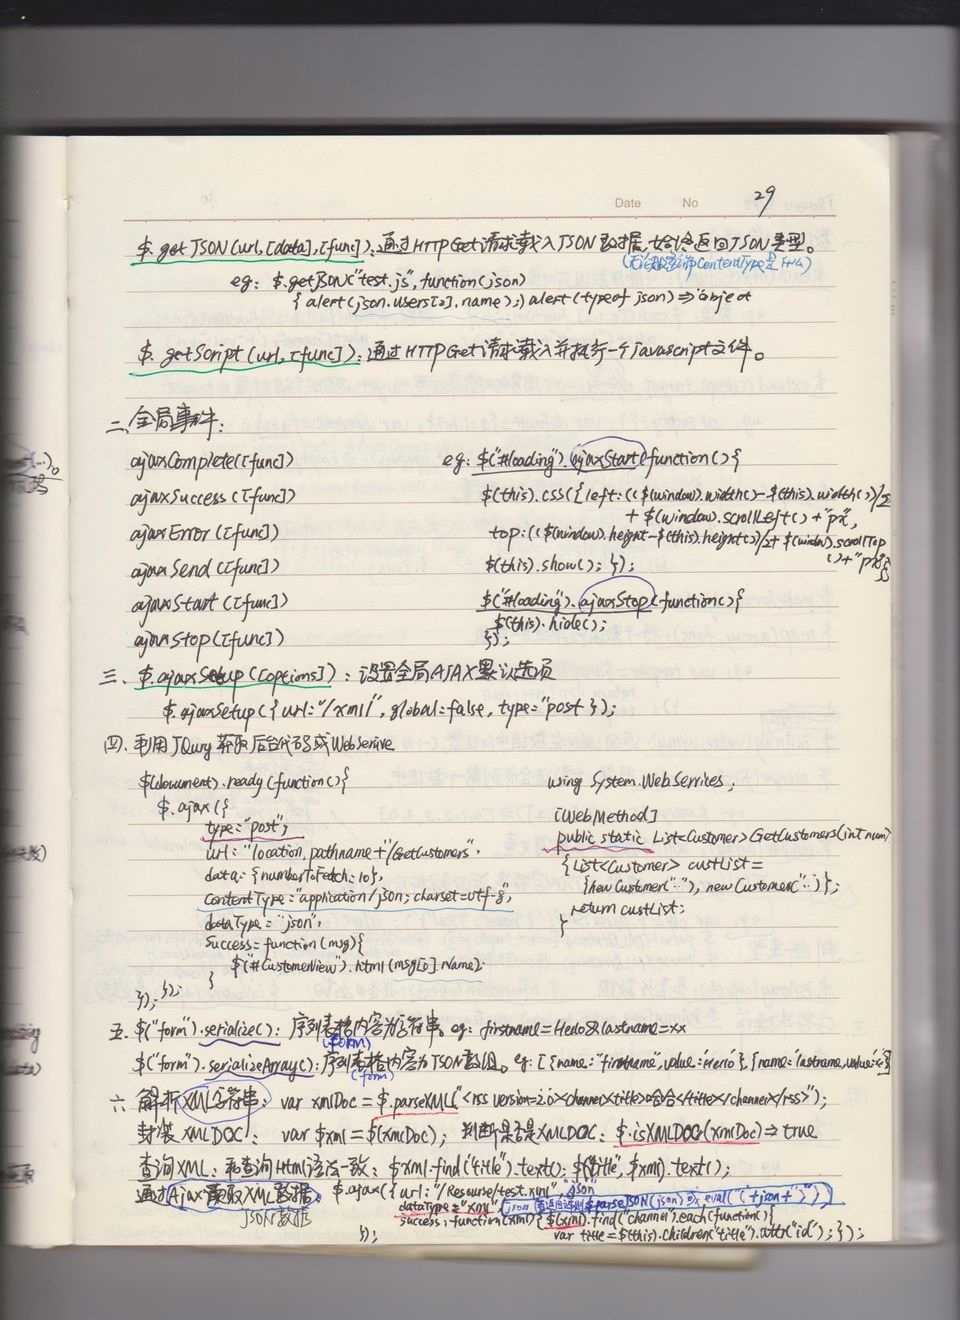 Date No 29
$.getJSON(url,[data],[func]):通过HTTP Get请求载入JSON数据,始终返回JSON类型。
(无论服务端ContentType是什么)
eg: $.getJSON("test.js",function(json)
{alert(json.users[2].name);} alert(typeof json)⇒object
$.getScript(url,[func]):通过HTTP Get请求载入并执行一个Javascript文件。
二、全局事件:
ajaxComplete([func]) eg: $("#loading").ajaxStart(function(){
ajaxSuccess([func]) $(this).css({left:(($(window).width()-$(this).width())/2
+ $(window).scrollLeft()+"px",
ajaxError([func]) top:(($(window).height-$(this).height())/2+$(window).scrollTop
()+"px"});
ajaxSend([func]) $(this).show(); });
ajaxStart([func]) $("#loading").ajaxStop(function(){
$(this).hide();
ajaxStop([func]) });
三、$.ajaxSetup([options]):设置全局AJAX默认选项
$.ajaxSetup({url:"/xml/", global=false, type="post"});
四、利用JQury获取后台代码或WebSerive
$(document).ready(function(){ using System.Web.Services;
$.ajax({ [WebMethod]
type="post", public static List<Customer> GetCustomers(int num)
url:"location.pathname+"/GetCustomers", {List<Customer> custList =
data:{numberToFetch:10}, {new Customer("..."), new Customer("...")};
contentType="application/json; charset=utf-8", return custList;
dataType="json", }
success=function(msg){
$("#CustomerView").html(msg[0].Name);
}
}); });
五、$("form").serialize(): 序列表格内容为字符串。eg: firstname=Hello&lastname=xx
(form)
$("form").serializeArray():序列表格内容为JSON数组。eg:[{name:"firstname",value:"Hello"},{name:"lastname,value:"xx"}]
(form)
六、解析XML字符串: var xmlDoc=$.parseXML("<rss version=2.0><channel><title>哈哈</title></channel></rss>");
封装XMLDOC: var $xml=$(xmlDoc); 判断是否是XMLDOC: $.isXMLDOC(xmlDoc)⇒true
查询XML:和查询Html语法一致: $xml.find("title").text(); $("title",$xml).text();
通过Ajax获取XML数据。$.ajax({url:"/Resourse/test.xml", json
dataType="xml" json $.parseJSON(json) or eval("("+json+")")
JSON数据 success:function(xml){$(xml).find("channel").each(function(){
}); var title=$(this).children("title").attr("id");});